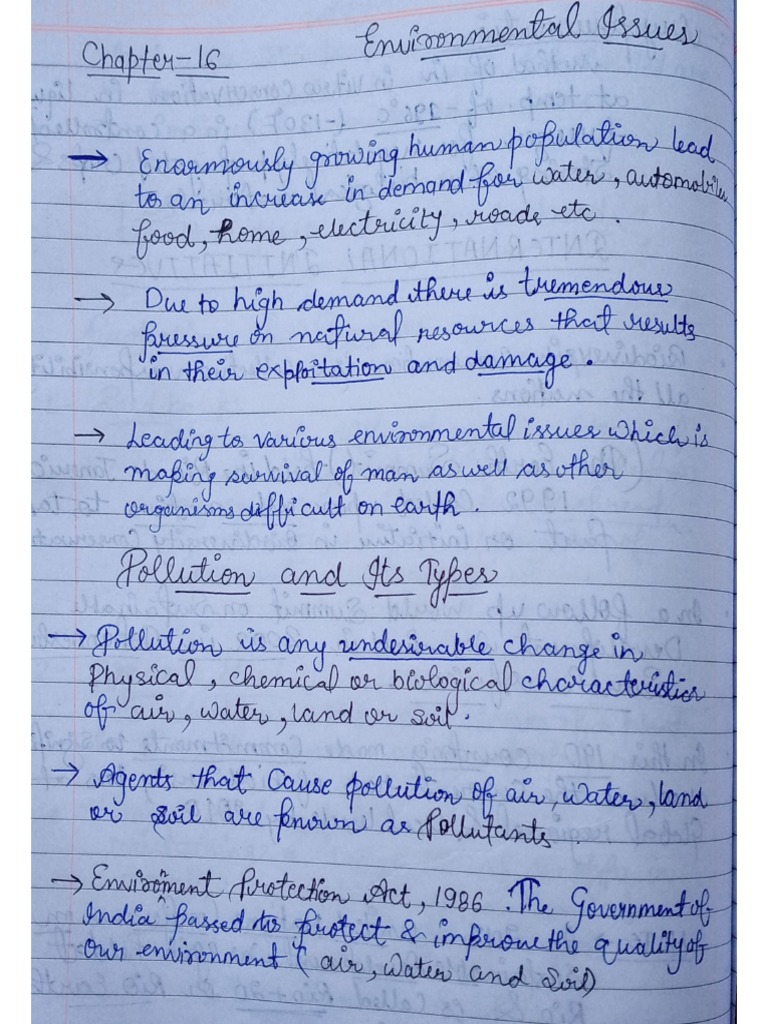 Environmental Issues
Chapter-16
→ Enormously growing human population lead
to an increase in demand for water, automobiles
food, home, electricity, roads etc.
→ Due to high demand there is tremendous
pressure on natural resources that results
in their exploitation and damage.
→ Leading to various environmental issues which is
making survival of man as well as other
organisms difficult on earth.
Pollution and Its Types
→ Pollution is any undesirable change in
Physical, chemical or biological characteristics
of air, water, land or soil.
→ Agents that Cause pollution of air, water, land
or soil are known as Pollutants.
→ Environment Protection Act, 1986. The Government of
India passed to protect & improve the quality of
our environment (air, water and soil)